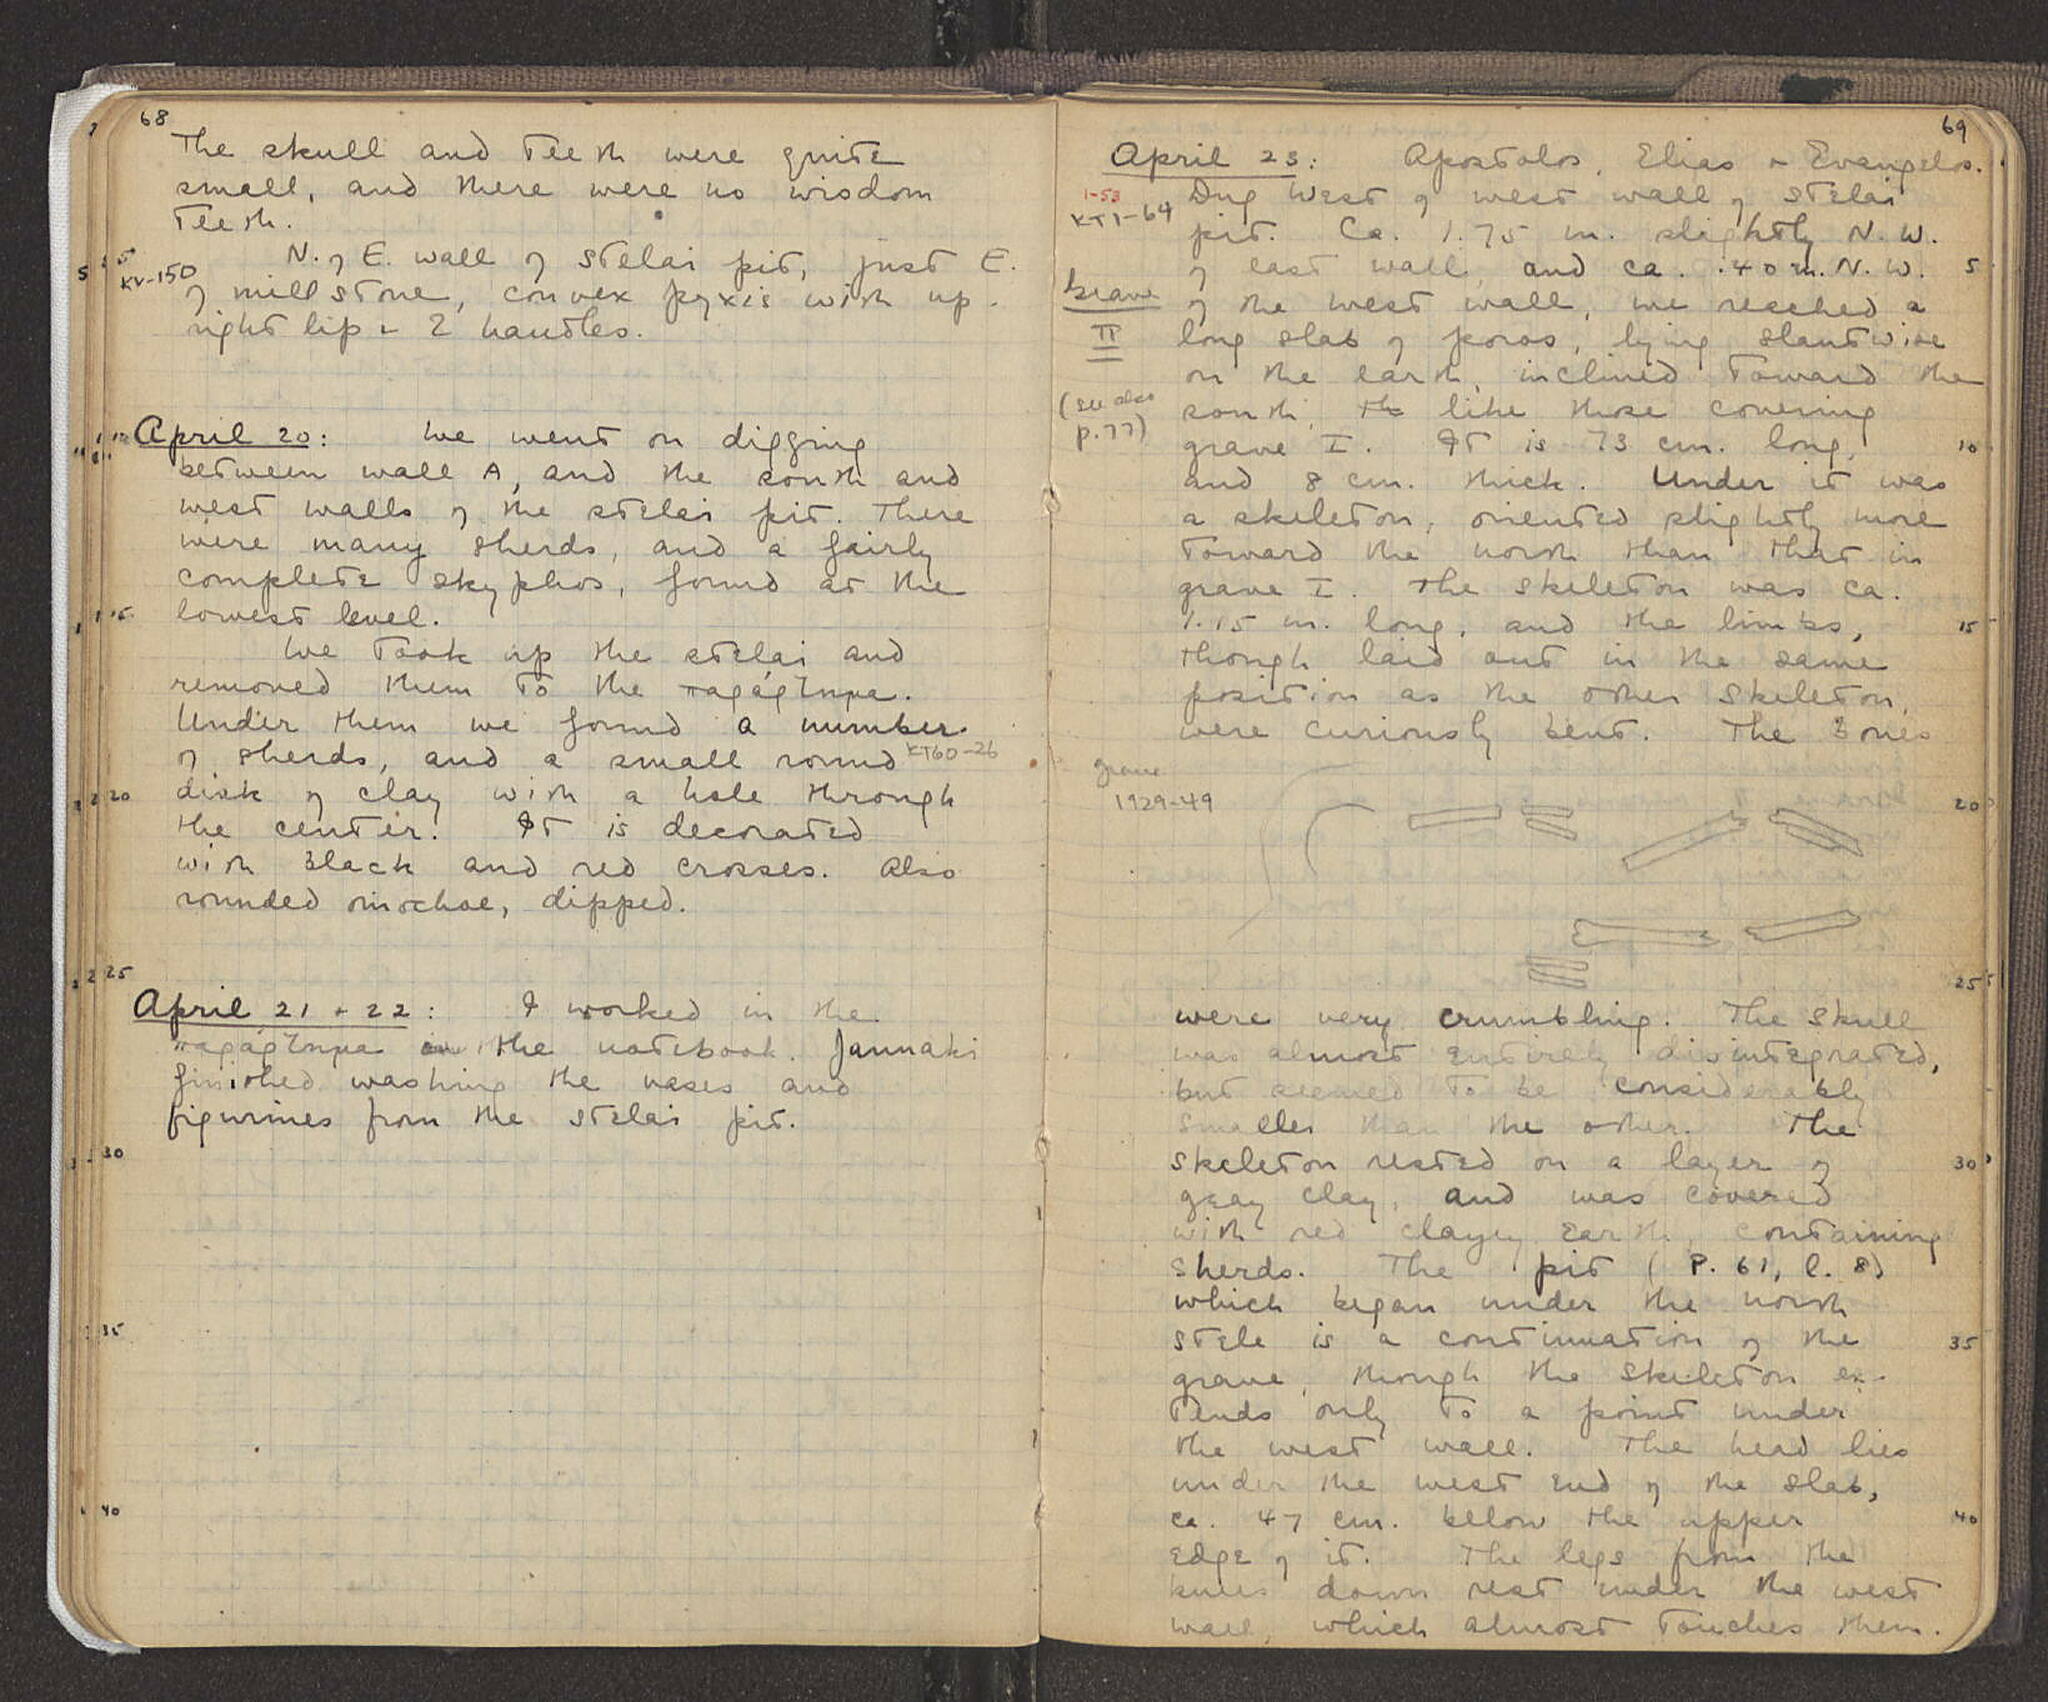 68
The skull and teeth were quite
small, and there were no wisdom
teeth.
5
N. of E. wall of stelai pit, just E.
KV-150
of millstone, convex pyxis with up-
right lip & 2 handles.
April 20: We went on digging
between wall A, and the south and
west walls of the stelai pit. There
were many sherds, and a fairly
complete skyphos, found at the
15
lowest level.
We took up the stelai and
removed them to the παράρτημα.
Under them we found a number
of sherds, and a small round KT60-26
20
disk of clay with a hole through
the center. It is decorated
with black and red crosses. Also
rounded oinochoe, dipped.
25
April 21 + 22: I worked in the
παράρτημα on the notebook. Jannaki
finished washing the vases and
figurines from the stelai pit.
30
35
40
69
April 23: Apostolos, Elias + Evangelos.
1-53
KT1-64
Dug West of west wall of stelai
pit. Ca. 1.75 m. slightly N.W.
of east wall, and ca. .40 m. N.W. 5
Grave
II
of the west wall, we reached a
long slab of poros, lying slantwise
on the earth, inclined toward the
(see also
p.77)
south, the like those covering
grave I. It is 73 cm. long, 10
and 8 cm. thick. Under it was
a skeleton, oriented slightly more
toward the north than that in
grave I. The skeleton was ca.
1.15 m. long, and the limbs, 15
though laid out in the same
position as the other skeleton,
were curiously bent. The bones
grave
1929-49
20
25
were very crumbling. The skull
was almost entirely disintegrated,
but seemed to be considerably
smaller than the other. The
skeleton rested on a layer of 30
gray clay, and was covered
with red clayey earth, containing
sherds. The pit (P. 61, l. 8)
which began under the north
stele is a continuation of the 35
grave, though the skeleton ex-
tends only to a point under
the west wall. The head lies
under the west end of the slab,
ca. 47 cm. below the upper 40
edge of it. The legs from the
knees down rest under the west
wall, which almost touches them.